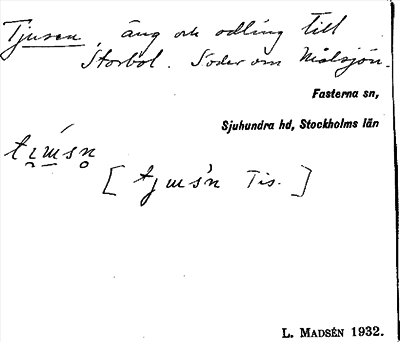 Tjusen, äng och odling till
Storbol. Söder om Målsjön.
Fasterna sn,
Sjuhundra hd, Stockholms län
[ Tis. ]
L. MADSÉN 1932.